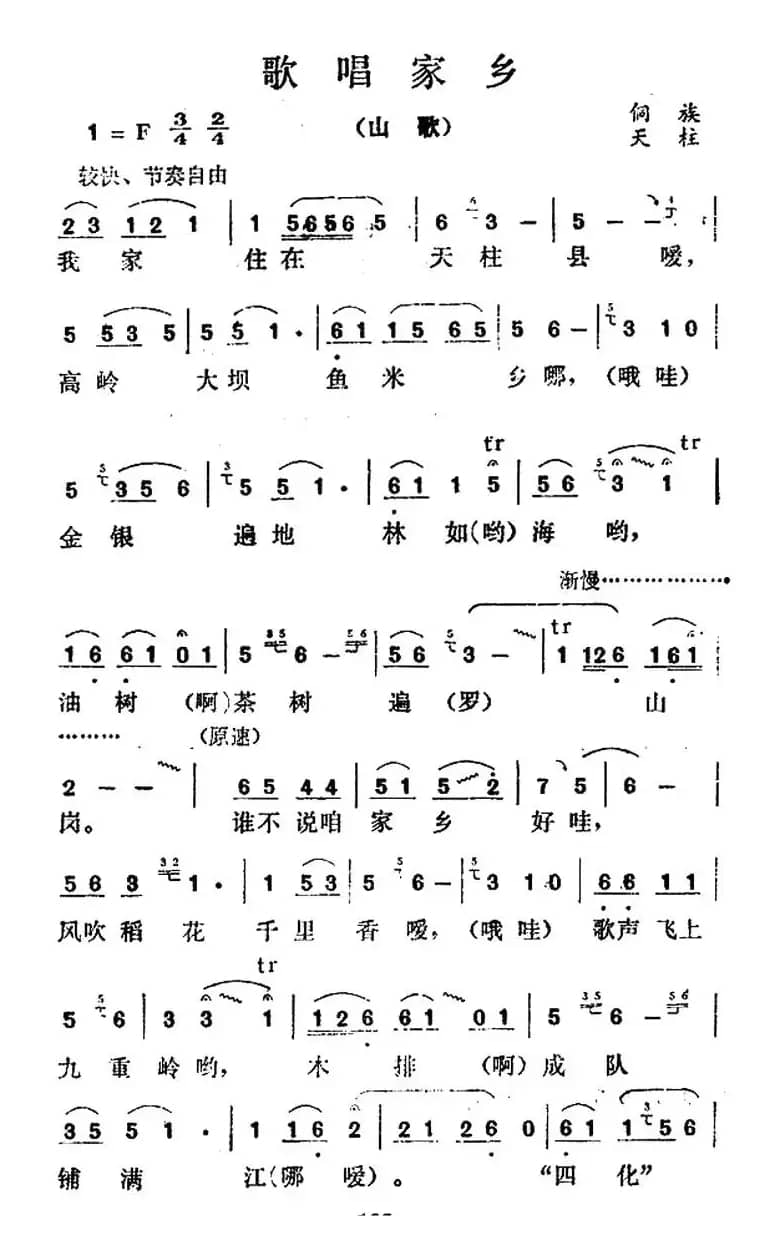 歌唱家乡
1 = F 3/4 2/4 （山歌） 侗族
天柱
较快、节奏自由
2 3 1 2 1 | 1 5 6 5 6 5 | 6 3 - | 5 - -
我家 住在 天柱县 嗳，
5 5 3 5 | 5 5 1 · | 6 1 1 5 6 5 | 5 6 - | 3 1 0
高岭 大坝 鱼米 乡哪，（哦哇）
5 3 5 6 | 5 5 1 · | 6 1 1 5 | 5 6 3 1
tr tr
金银 遍地 林如(哟)海哟，
渐慢
1 6 6 1 0 1 | 5 6 - | 5 6 3 - | 1 1 2 6 1 6 1
tr
油树 (啊)茶树 遍(罗) 山
(原速)
2 - - | 6 5 4 4 | 5 1 5 2 | 7 5 | 6 -
岗。 谁不说咱 家乡 好哇，
5 6 3 1 · | 1 5 3 | 5 6 - | 3 1 0 | 6 6 1 1
风吹稻花 千里香嗳，（哦哇）歌声飞上
tr
5 6 | 3 3 1 | 1 2 6 6 1 0 1 | 5 6 -
九重岭哟， 木排 (啊)成队
3 5 5 1 · | 1 1 6 2 | 2 1 2 6 0 | 6 1 1 5 6
铺满 江(哪嗳)。 “四化”